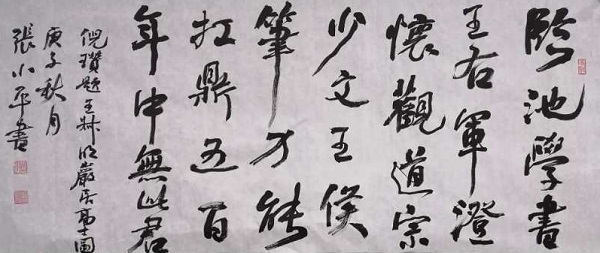 臨池學書
王右軍澄
懷觀道宗
少文王侯
筆力能
扛鼎五百
年中無此君
倪瓚題王叔明巖居高士圖
庚子秋月
張小平書